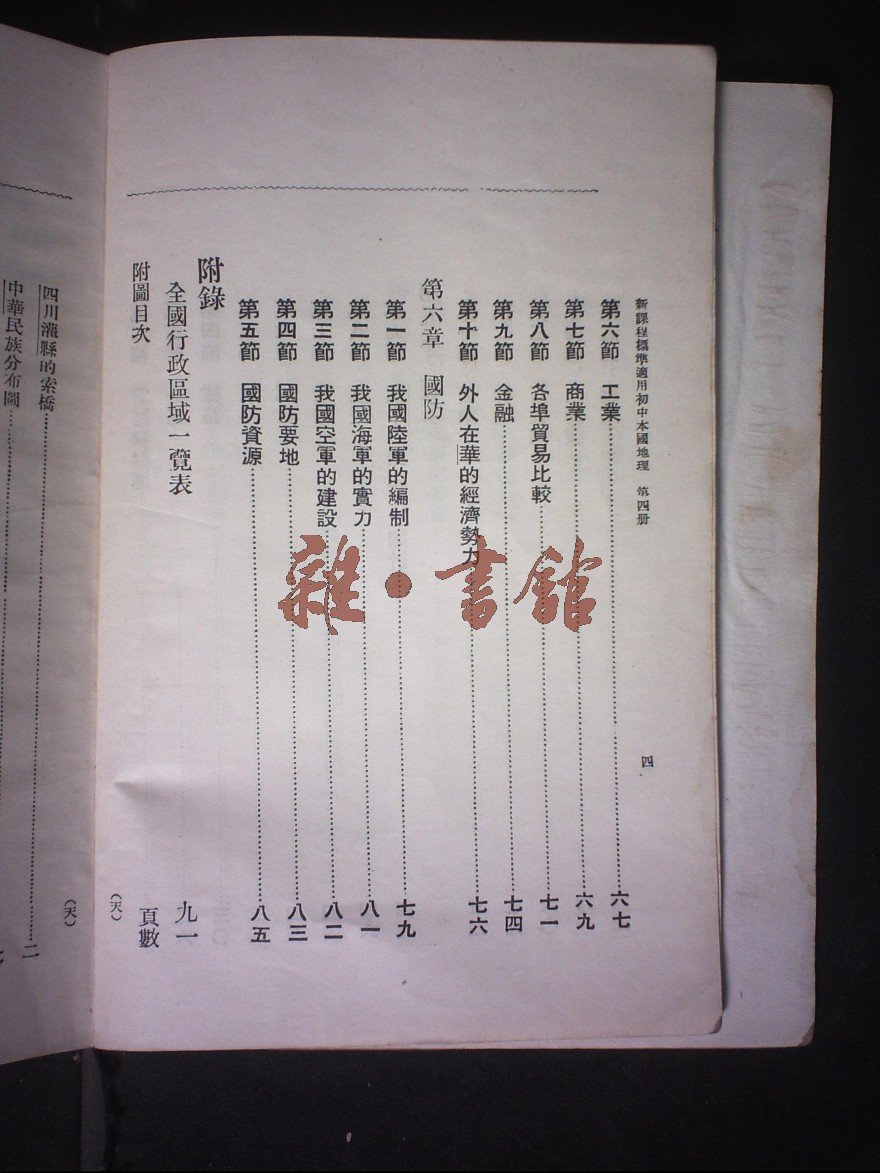 新課程標準適用初中本國地理 第四册
四
第六節 工業 六七
第七節 商業 六九
第八節 各埠貿易比較 七一
第九節 金融 七四
第十節 外人在華的經濟勢力 七六
第六章 國防
第一節 我國陸軍的編制 七九
第二節 我國海軍的實力 八一
第三節 我國空軍的建設 八二
第四節 國防要地 八三
第五節 國防資源 八五
附錄
全國行政區域一覽表 九一
附圖目次 頁數
(天)
四川灌縣的索橋 二
(天)
中華民族分布圖
雜·書館